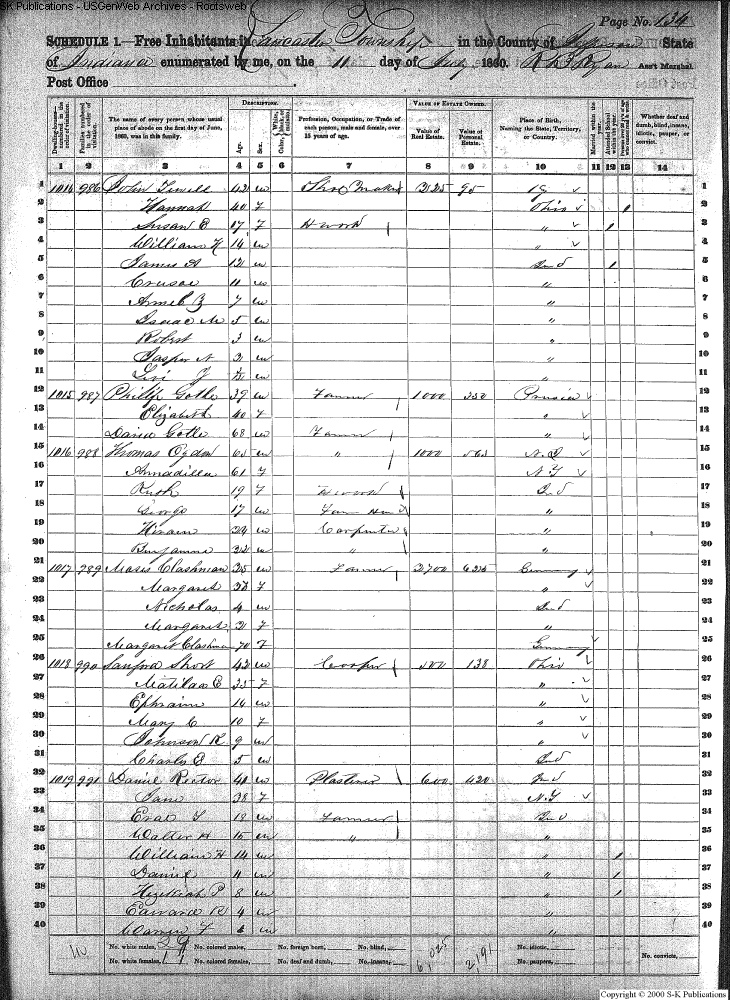 S-K Publications - USGenWeb Archives - Rootsweb
Page No. 134
SCHEDULE 1.—Free Inhabitants in Lancaster Township in the County of Jefferson State
of Indiana enumerated by me, on the 11 day of July 1860. Ryan Ass't Marshal.
Post Office
Dwelling-houses—numbered in the order of visitation.
Families numbered in the order of visitation.
The name of every person whose usual place of abode on the first day of June, 1860, was in this family.
DESCRIPTION.
Age.
Sex.
Color, White, black, or mulatto.
Profession, Occupation, or Trade of each person, male and female, over 15 years of age.
VALUE OF ESTATE OWNED.
Value of Real Estate.
Value of Personal Estate.
Place of Birth, Naming the State, Territory, or Country.
Married within the year.
Attended School within the year.
Persons over 20 y'rs of age who cannot read & write.
Whether deaf and dumb, blind, insane, idiotic, pauper, or convict.
1 2 3 4 5 6 7 8 9 10 11 12 13 14
1 986 John 42 m Shoe Maker 225 95 1
2 Hannah 40 f Ohio 2
3 Susan E 17 f H work " 3
4 William H 14 m " 4
5 James A 12 m Ind 5
6 Crusoe 11 m " 6
7 7 m " 7
8 Isaac M 5 m " 8
9 Robert 3 m " 9
10 Jasper N 2 m " 10
11 Levi m " 11
12 1015 987 Phillip Gothe 39 m Farmer 1000 350 Prussia 12
13 Elizabeth 40 f " 13
14 Gothe 68 m Farmer " 14
15 1016 988 Thomas Ogdon m " 1000 15
16 Annadilla 61 f N.Y 16
17 Ruth 19 f H work Ind 17
18 George 17 m Farm Hand " 18
19 Hiram 24 m Carpenter " 19
20 Benjamin 22 m " " 20
21 1017 989 Moses Clashman 35 m Farmer 2700 625 Germany 21
22 Margaret f " 22
23 Nicholas 4 m Ind 23
24 Margaret 2 f " 24
25 Margaret Clashman 70 f Germany 25
26 1018 990 Sanford Short 42 m Cooper 500 138 Ohio 26
27 Matilda E 35 f " 27
28 Ephraim 16 m " 28
29 Mary C 10 f " 29
30 Johnson R 9 m " 30
31 Charles E 5 m Ind 31
32 1019 991 Daniel Rector 41 m Plasterer 600 420 Ind 32
33 Jane 38 f N.Y 33
34 18 m Farmer Ind 34
35 Walter H 15 m " " 35
36 William H 14 m " 36
37 Daniel 11 m " 37
38 Hezekiah P 8 m " 38
39 Edward R 4 m " 39
40 Warren m " 40
No. white males, 29 No. colored males, No. foreign born, No. blind, 6,025 2,191 No. idiotic, No. convicts,
No. white females, 11 No. colored females, No. deaf and dumb, No. insane, No. paupers,
Copyright © 2000 S-K Publications